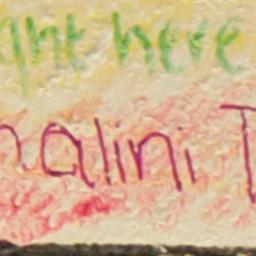 ght here
nalini T